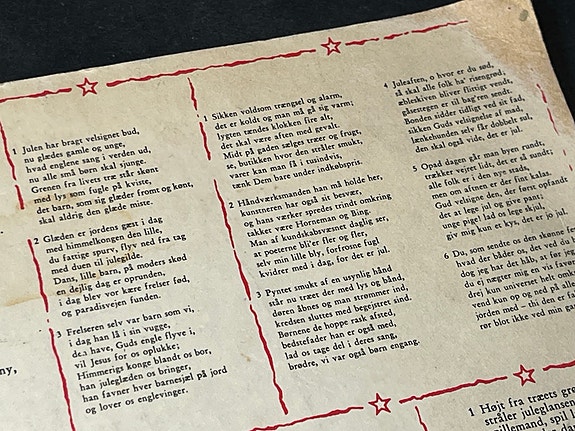 1 Julen har bragt velsignet bud,
nu glædes gamle og unge,
hvad englene sang i verden ud,
nu alle små børn skal sjunge.
Grenen fra livets træ står skønt
med lys som fugle på kviste,
det barn, som sig glæder fromt og kønt,
skal aldrig den glæde miste.
2 Glæden er jordens gæst i dag
med himmelkongen den lille,
du fattige spurv, flyv ned fra tag
med duer til julegilde.
Dans, lille barn, på moders skød
en dejlig dag er oprunden,
i dag blev vor kære frelser fød,
og paradisvejen funden.
3 Frelseren selv var barn som vi,
i dag han lå i sin vugge,
de have, Guds engle flyve i,
vil Jesus for os oplukke;
Himmerigs konge blandt os bor,
han juleglæden os bringer,
han favner hver barnesjæl på jord
og lover os englevinger.
ny,
1 Sikken voldsom trængsel og alarm,
det er koldt og man må gå sig varm;
lygten tændes klokken fire alt,
det skal være aften med gevalt.
Midt på gaden sælges træer og frugt,
se, butikken hvor den stråler smukt,
varer kan man få i tusindvis,
tænk Dem bare under indkøbspris.
2 Håndværksmanden han må holde her,
kunstneren har også sit besvær,
og hans værker spredes trindt omkring
takket være Horneman og Bing.
Man af kundskabsvæsnet daglig ser,
at poeterne bli'er fler og fler,
selv min lille bly, forfrosne fugl
kvidrer med i dag, for det er jul.
3 Pyntet smukt af en usynlig hånd
står nu træet der med lys og bånd,
døren åbnes og man strømmer ind,
kredsen sluttes med begejstret sind.
Børnene de hoppe rask afsted,
bedstefader han er også med,
lad os tage del i deres sang,
brødre, vi var også børn engang.
4 Juleaften, o hvor er du sød,
så skal alle folk ha' risengrød,
æbleskiven bliver flittigt vendt,
gåsestegen er til bag'ren sendt.
Bonden sidder tidligt ved sit fad,
sikken Guds velsignelse af mad,
lænkehunden selv får dobbelt sul,
den skal også vide, det er jul.
5 Opad dagen går man byen rundt,
trækker vejret lidt, det er så sundt;
alle folk er i den nye stads,
men om aftnen er der fint kalas.
Gud velsigne den, der først opfandt
det at lege jul og give pant,
unge pige! lad os lege skjul,
giv mig kun et kys, det er jo jul.
6 Du, som sendte os den skønne
hvad der båder os, det ved du
dog jeg har det håb, at før jeg
du ej nægter mig en vis
drej kun universet helt
vend kun op og ned på alle
jorden med – thi den er
rør blot ikke ved min
1 Højt fra træets
stråler juleglansen
spillemand, spil